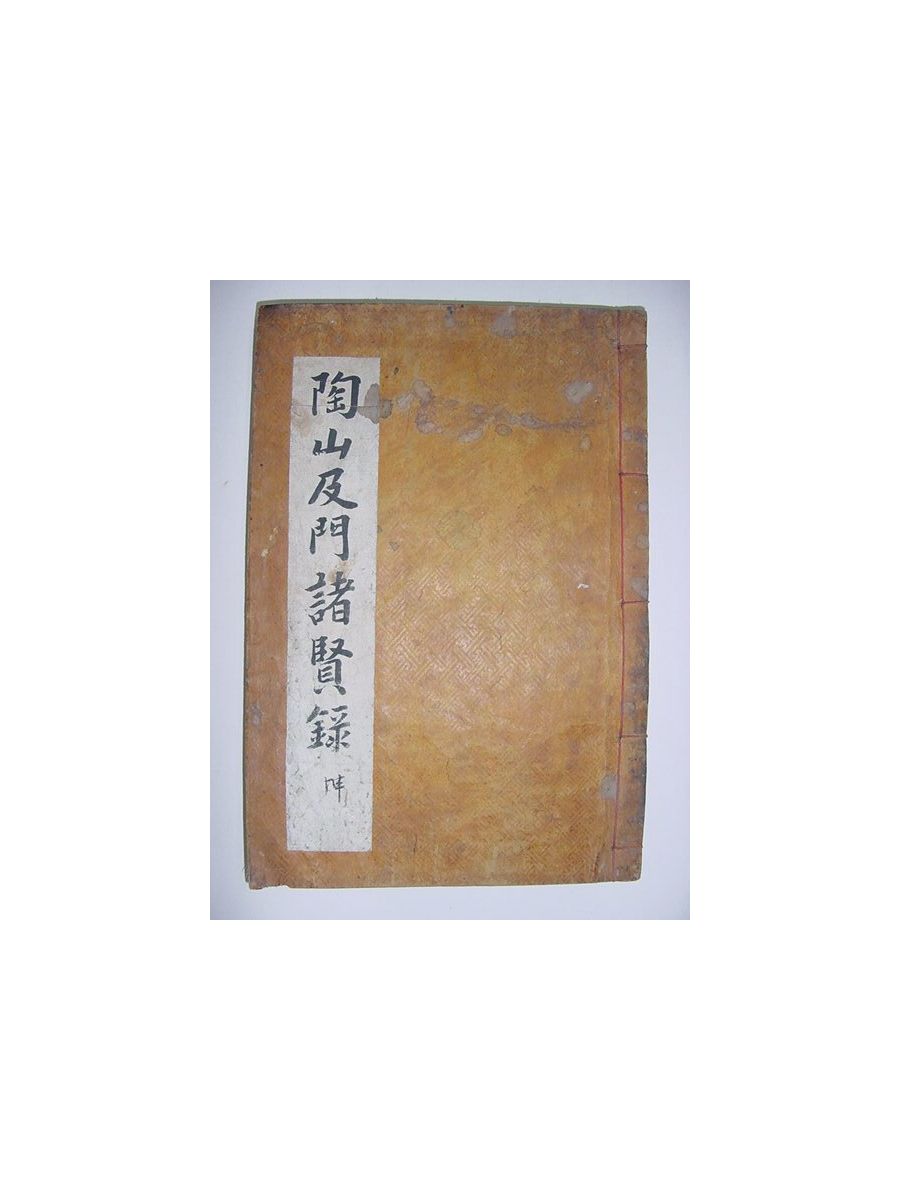 陶山及門諸賢錄